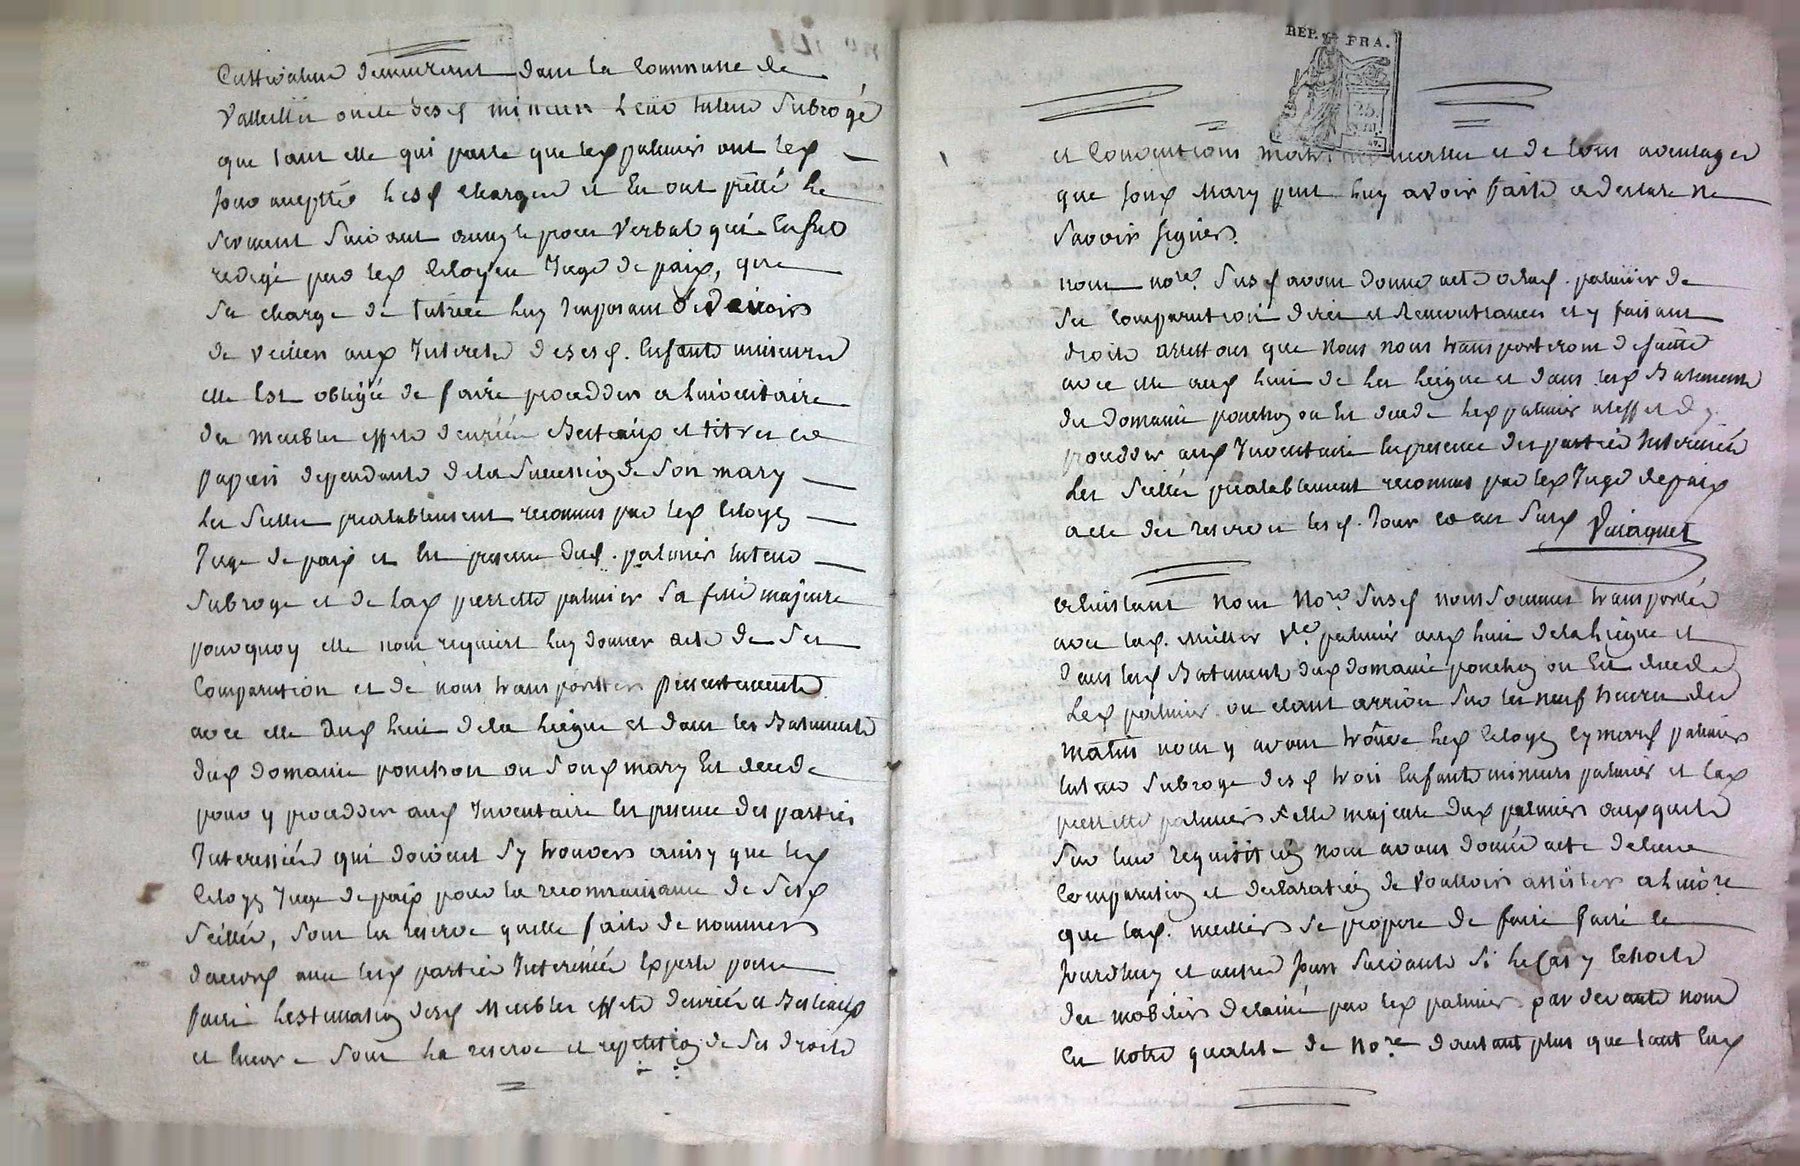 Cultivateur demeurant dans la Commune de
Valleillie oncle desd mineurs leur tuteur Subrogé
que tant elle qui parle que led palmier ont led
jour accepttés lesd charges et En ont prétté le
serment Suivant le proces Verbal qui En fut
redigé par led Citoyen Juge de paix, que
Sa charge de tutrice luy Imposant de devoirs
de veiller aux Interets desd. Enfants mineurs
elle Est obligée de faire procedder a linventaire
des meubles effets denrées Bestiaux et titres et
papiers dependants de la Succession de Son mary
les Scellés prealablement reconnus par led Citoyen
Juge de paix et En presence dud. palmier tuteur
Subrogé et de lad pierrette palmier Sa fille majeure
pourquoy elle nous requiert luy donner acte de Ses
Comparution et de nous transporter presentement
avec elle aud lieu dela liegue et dans les Batiments
dud domaine ponchon ou Son d mary Est decedé
pour y procedder aud Inventaire En presence des parties
Interessées qui doivent S'y trouver ainsy que led
Citoyen Juge de paix pour la reconnaissance de Sesd
Scellés, sous la reserve quelle fait de nommer
daccord avec lesd parties Interessées Experts pour
faire lestimation desd Meubles effets denrées et Bestiaux
et Encore Sous la reserve et repetition de Ses droits
REP. FRA.
25
CENT.
et Conventions matrimoniales et de tous avantages
que sond Mary peut luy avoir faits a declaré ne
Savoir signer.
nous no.re Susd avons donné acte a lad. palmier de
Ses Comparution dires et Remontrances et y faisant
droits arrettons que Nous nous transporterons de suitte
avec elle aud lieu de la liegue et dans lesd Batiments
du Domaine ponchon ou Est decedé led palmier a leffet d'y
procedder aud Inventaire En presence des parties Interessées
Les Scellés prealablement reconnus par led Juge de paix
acte des reserves lesd. Jour et an Susd
a linstant Nous No.re Susd nous Sommes transportés
avec lad. Mellier V.e palmier aud lieu dela liegue et
dans lesd Batiments dud domaine ponchon ou Est decedé
Led palmier ou etant arrivés Sur les neuf heures du
matin nous y avons trouvé led Citoyen palmier
tuteur Subrogé desd trois Enfants mineurs palmier et lad
pierrette palmier fille majeure dud palmier auxquels
Sur leur requisition nous avons donné acte de leur
Comparution et declaration de Vouloir assister a linv.re
que lad. mellier se propose de faire faire ce
jourdhuy et autres jours Suivants Si le Cas y Echoit
des mobiliers delaissé par led palmier par devant nous
En notre qualité de No.re dautant plus que tant Eux